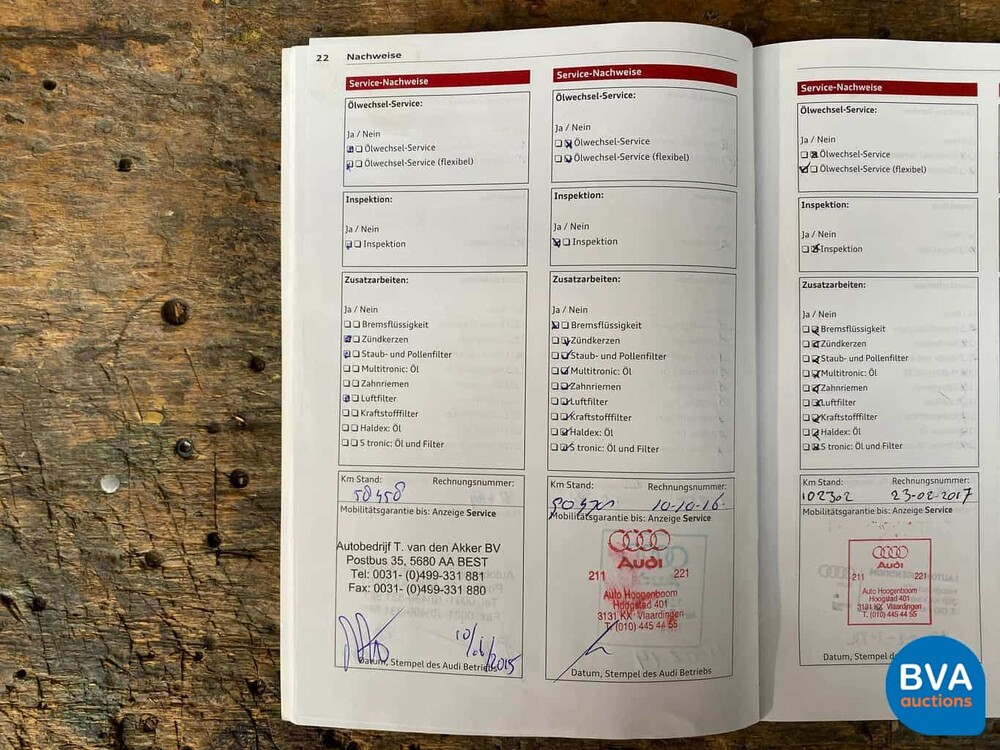 22 Nachweise
Service-Nachweise
Ölwechsel-Service:
Ja / Nein
Ölwechsel-Service
Ölwechsel-Service (flexibel)
Inspektion:
Ja / Nein
Inspektion
Zusatzarbeiten:
Ja / Nein
Bremsflüssigkeit
Zündkerzen
Staub- und Pollenfilter
Multitronic: Öl
Zahnriemen
Luftfilter
Kraftstofffilter
Haldex: Öl
S tronic: Öl und Filter
Km Stand: Rechnungsnummer:
58458
Mobilitätsgarantie bis: Anzeige Service
Autobedrijf T. van den Akker BV
Postbus 35, 5680 AA BEST
Tel: 0031- (0)499-331 881
Fax: 0031- (0)499-331 880
Datum, Stempel des Audi Betriebs
Service-Nachweise
Ölwechsel-Service:
Ja / Nein
Ölwechsel-Service
Ölwechsel-Service (flexibel)
Inspektion:
Ja / Nein
Inspektion
Zusatzarbeiten:
Ja / Nein
Bremsflüssigkeit
Zündkerzen
Staub- und Pollenfilter
Multitronic: Öl
Zahnriemen
Luftfilter
Kraftstofffilter
Haldex: Öl
S tronic: Öl und Filter
Km Stand: Rechnungsnummer:
10-10-16
Mobilitätsgarantie bis: Anzeige Service
Audi
211 221
Auto Hoogenboom
Hoogstad 401
3131 KX Vlaardingen
T. (010) 445 44 55
Datum, Stempel des Audi Betriebs
Service-Nachweise
Ölwechsel-Service:
Ja / Nein
Ölwechsel-Service
Ölwechsel-Service (flexibel)
Inspektion:
Ja / Nein
Inspektion
Zusatzarbeiten:
Ja / Nein
Bremsflüssigkeit
Zündkerzen
Staub- und Pollenfilter
Multitronic: Öl
Zahnriemen
Luftfilter
Kraftstofffilter
Haldex: Öl
S tronic: Öl und Filter
Km Stand: Rechnungsnummer:
102302 23-02-2017
Mobilitätsgarantie bis: Anzeige Service
Audi
211 221
Auto Hoogenboom
Hoogstad 401
3131 KX Vlaardingen
T. (010) 445 44 55
Datum, Stempel des
BVA
auctions